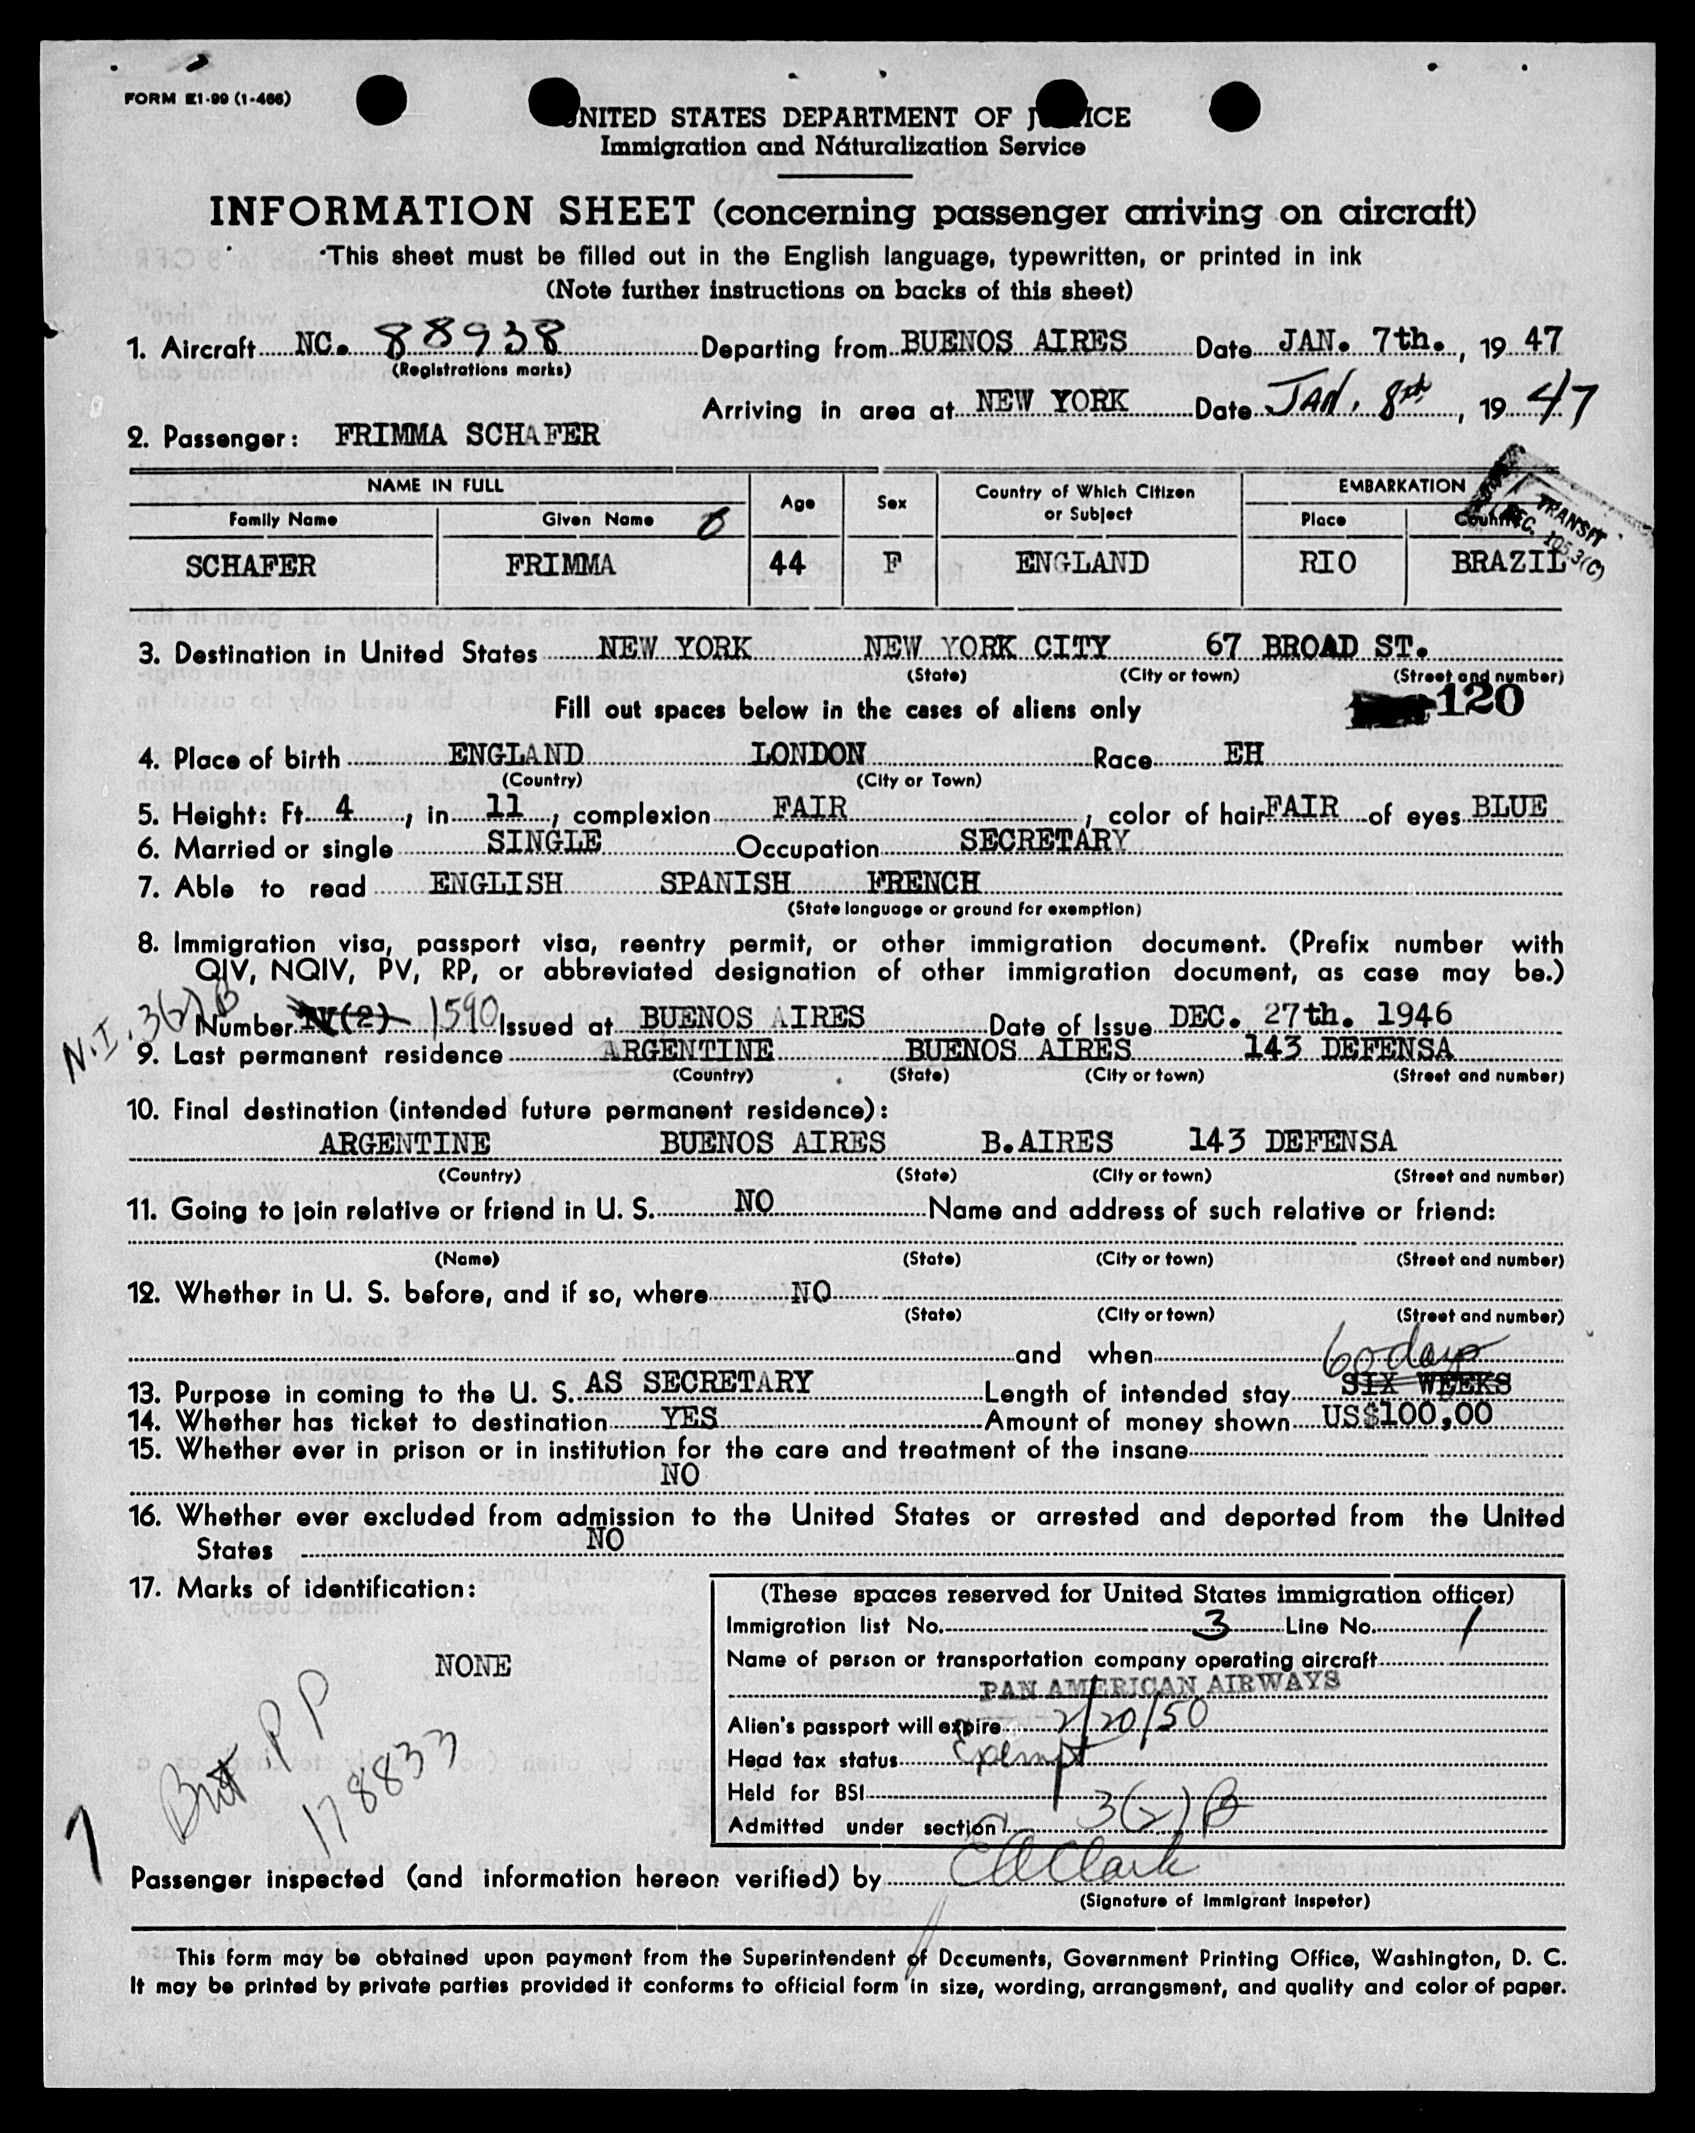 FORM EI-99 (1-466)
UNITED STATES DEPARTMENT OF JUSTICE
Immigration and Naturalization Service
INFORMATION SHEET (concerning passenger arriving on aircraft)
This sheet must be filled out in the English language, typewritten, or printed in ink
(Note further instructions on backs of this sheet)
1. Aircraft NC. 88938 Departing from BUENOS AIRES Date JAN. 7th. , 19 47
(Registrations marks)
Arriving in area at NEW YORK Date JAN. 8th , 19 47
2. Passenger: FRIMMA SCHAFER
NAME IN FULL Age Sex Country of Which Citizen or Subject EMBARKATION
Family Name Given Name Place Country
TRANSIT
SEC. 105.3(C)
SCHAFER FRIMMA 44 F ENGLAND RIO BRAZIL
3. Destination in United States NEW YORK NEW YORK CITY 67 BROAD ST.
(State) (City or town) (Street and number)
Fill out spaces below in the cases of aliens only 120
4. Place of birth ENGLAND LONDON Race EH
(Country) (City or Town)
5. Height: Ft. 4 , in 11 , complexion FAIR , color of hair FAIR of eyes BLUE
6. Married or single SINGLE Occupation SECRETARY
7. Able to read ENGLISH SPANISH FRENCH
(State language or ground for exemption)
8. Immigration visa, passport visa, reentry permit, or other immigration document. (Prefix number with
QIV, NQIV, PV, RP, or abbreviated designation of other immigration document, as case may be.)
N.I. 3(2)B
Number V(2) 1590 Issued at BUENOS AIRES Date of Issue DEC. 27th. 1946
9. Last permanent residence ARGENTINE BUENOS AIRES 143 DEFENSA
(Country) (State) (City or town) (Street and number)
10. Final destination (intended future permanent residence):
ARGENTINE BUENOS AIRES B.AIRES 143 DEFENSA
(Country) (State) (City or town) (Street and number)
11. Going to join relative or friend in U. S. NO Name and address of such relative or friend:
(Name) (State) (City or town) (Street and number)
12. Whether in U. S. before, and if so, where NO
(State) (City or town) (Street and number)
and when
60 days
13. Purpose in coming to the U. S. AS SECRETARY Length of intended stay SIX WEEKS
14. Whether has ticket to destination YES Amount of money shown US$100,00
15. Whether ever in prison or in institution for the care and treatment of the insane
NO
16. Whether ever excluded from admission to the United States or arrested and deported from the United
States NO
17. Marks of identification:
NONE
Brit PP
178833
7
(These spaces reserved for United States immigration officer)
Immigration list No. 3 Line No. 1
Name of person or transportation company operating aircraft
PAN AMERICAN AIRWAYS
Alien's passport will expire 2/20/50
Head tax status Exempt
Held for BSI
Admitted under section 3(2)B
Passenger inspected (and information hereon verified) by EA Clark
(Signature of Immigrant Inspetor)
This form may be obtained upon payment from the Superintendent of Documents, Government Printing Office, Washington, D. C.
It may be printed by private parties provided it conforms to official form in size, wording, arrangement, and quality and color of paper.